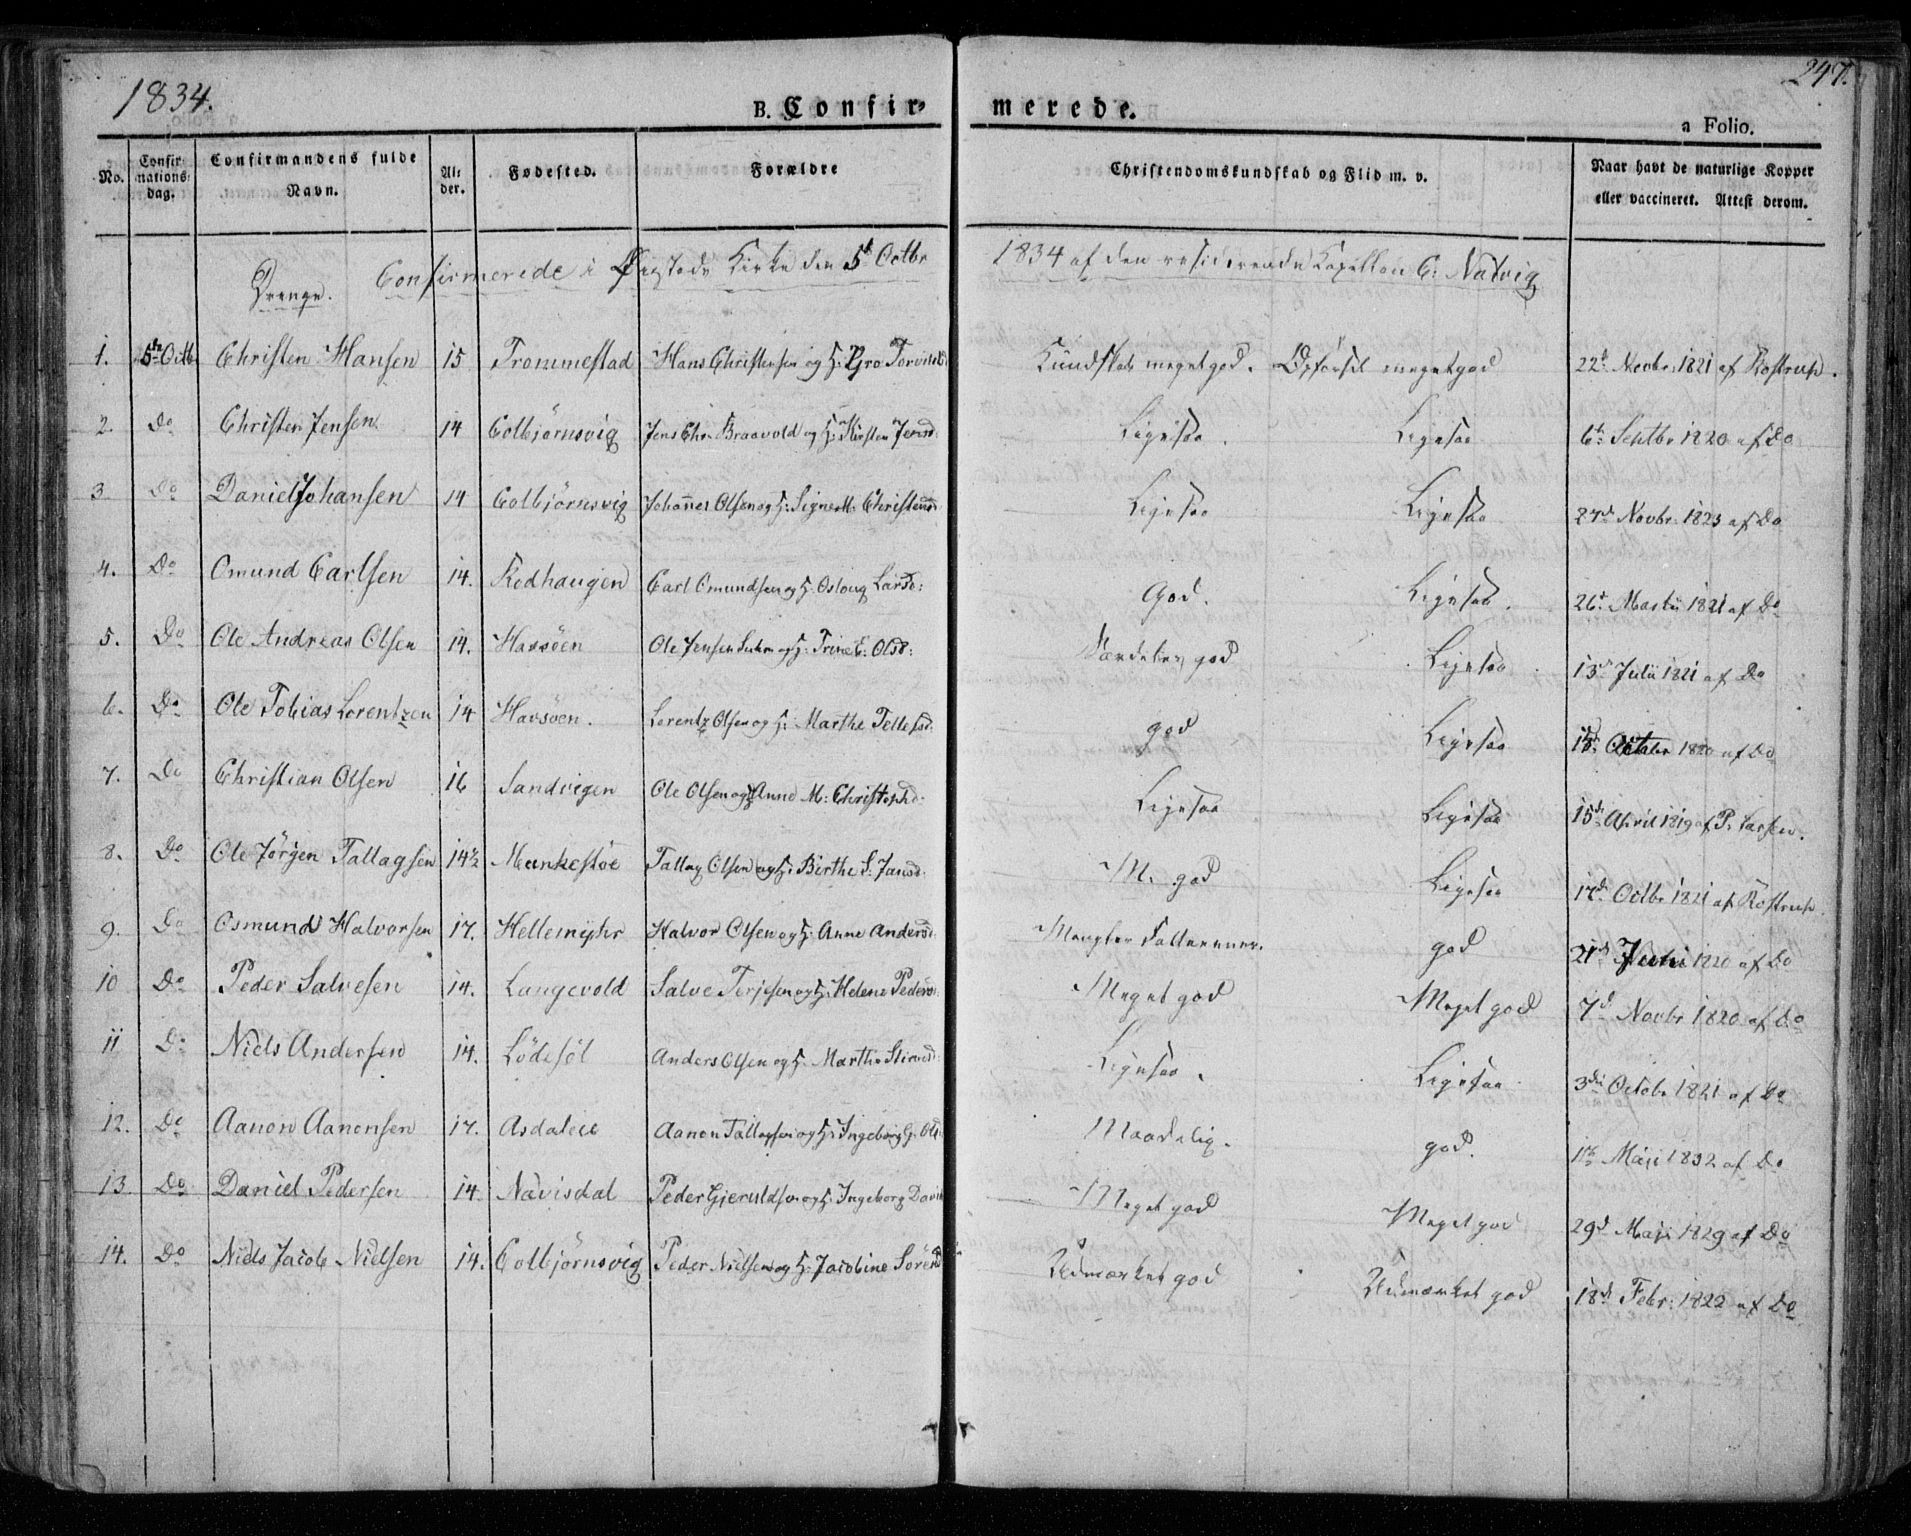 1834.
247.
B. Confir- merede.
a Folio.
No. Confirmations-dag. Confirmandens fulde Navn. Alder. Fødested. Forældre Christendomskundskab og Flid m. v. Naar havt de naturlige Kopper eller vaccineret. Attest derom.
Confirmerede i Øiestads Kirke den 5t Octbr 1834 af den residerende Kapellan C: Natvig
Drenge.
1. 5te Octb Christen Hansen 15 Trommestad Hans Christensen og H: Gro Kundskab meget god. Opførsel meget god 22d Novbr: 1821 af Rostrup.
2. Do Christen Jensen 14 Colbjørnsvig Jens Chr. Braavold og H: Kirsten Jensd: Ligesaa. Ligesaa 6te Septbr 1820 af Do
3 Do Daniel Johansen 14 Colbjørnsvig Johannes Olsen og H: Signe M: Christens Ligesaa Ligesaa 27d Novbr: 1823 af Do
4. Do Omund Carlsen 14. Rødhaugen Carl Omundsen og H. Oslaug Larsd: God. Ligesaa. 26t Martii 1821 af Do
5. Do Ole Andreas Olsen 14. Havsöen Ole Jensen og H: Trine E: Olsd: Særdeles god Ligesaa 13de Julii 1821 af Do
6. Do Ole Tobias Lorentzen 14 Havsöen. Lorentz Olsen og H: Marthe Tellefsd. god Ligesaa Octobr 1820 af Do
7. Do Christian Olsen 16 Sandvigen Ole Olsen og H Anne M: Christophd: Ligesaa Ligesaa 15de April 1819 af P: Larsen.
8. Do Ole Jørgen Tallagsen 14½ Munkestøe Tallag Olsen og H: Birthe S: Jansd. M. god Ligesaa 17de Octbr 1821 af Rostrup.
9. Do Osmund Halvorsen 17. Hellemyhr Halvor Olsen og H: Anne Andersd: god 21de 1820 af Do
10 Do Peder Salvesen 14. Langevold Salve Terjesen og H: Helene Pedersd: Meget god Meget god 7d Novbr 1820 af Do
11 Do Niels Andersen 14. Lödesöl Anders Olsen og H. Marthe Ligesaa. Ligesaa 3die Octobr 1821 af Do
12. Do Aanon Aanonsen 17. Asdalen Aanon Tallagsen og H: Ingeborg G. Ols Maadelig. god. Maji 1832 af Do
13 Do Daniel Pedersen 14. Navisdal Peder Gjeruldsen og H. Ingeborg David Meget god Meget god 29d Maji 1829 af Do
14. Do Niels Jacob Nielsen 14. Colbjørnsvig Peder Nielsen og H. Jacobine Sörensd Udmærket god Udmærket god 18d Febr: 1822 af Do